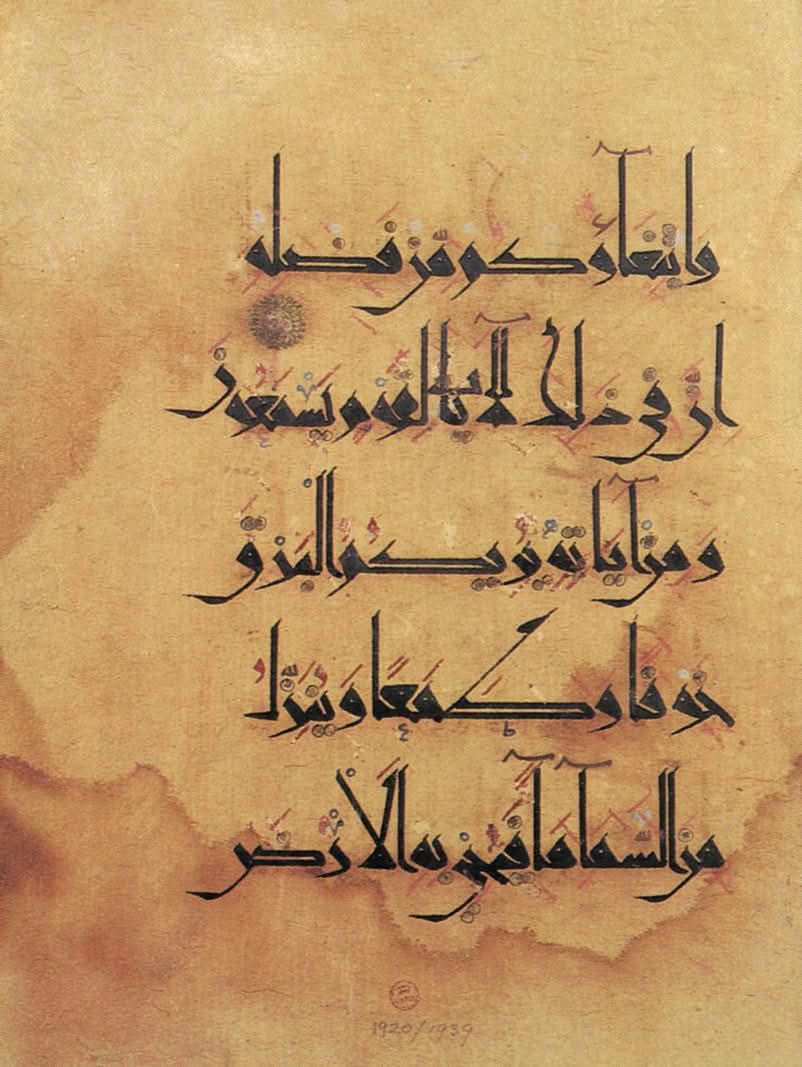 وابتغآؤكم من فضله
ان في ذلك لآيات لقوم يسمعون
ومن آياته يريكم البرق
خوفا وطمعا وينزل
من السمآ مآ فيحيي به الأرض
1920/1939